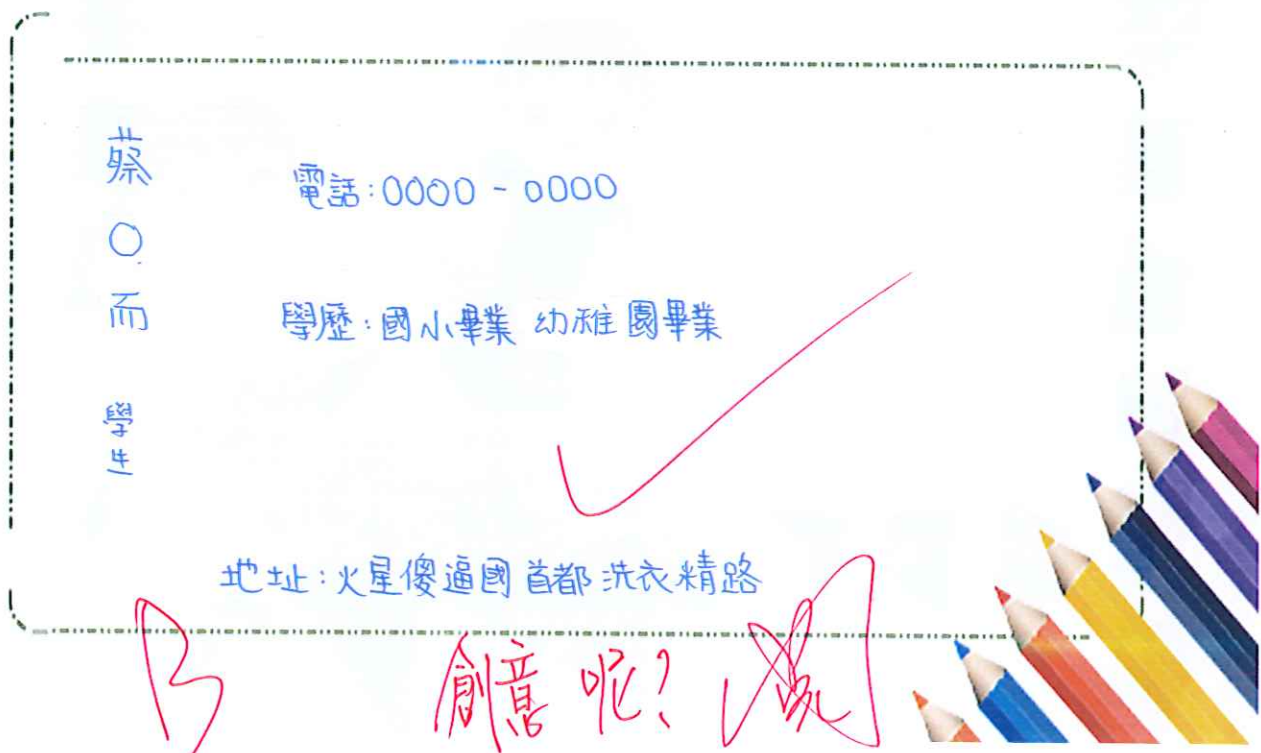 蔡〇而 學生
電話:0000-0000
學歷:國小畢業 幼稚園畢業
地址:火星傻逼國首都洗衣精路
B
創意呢?